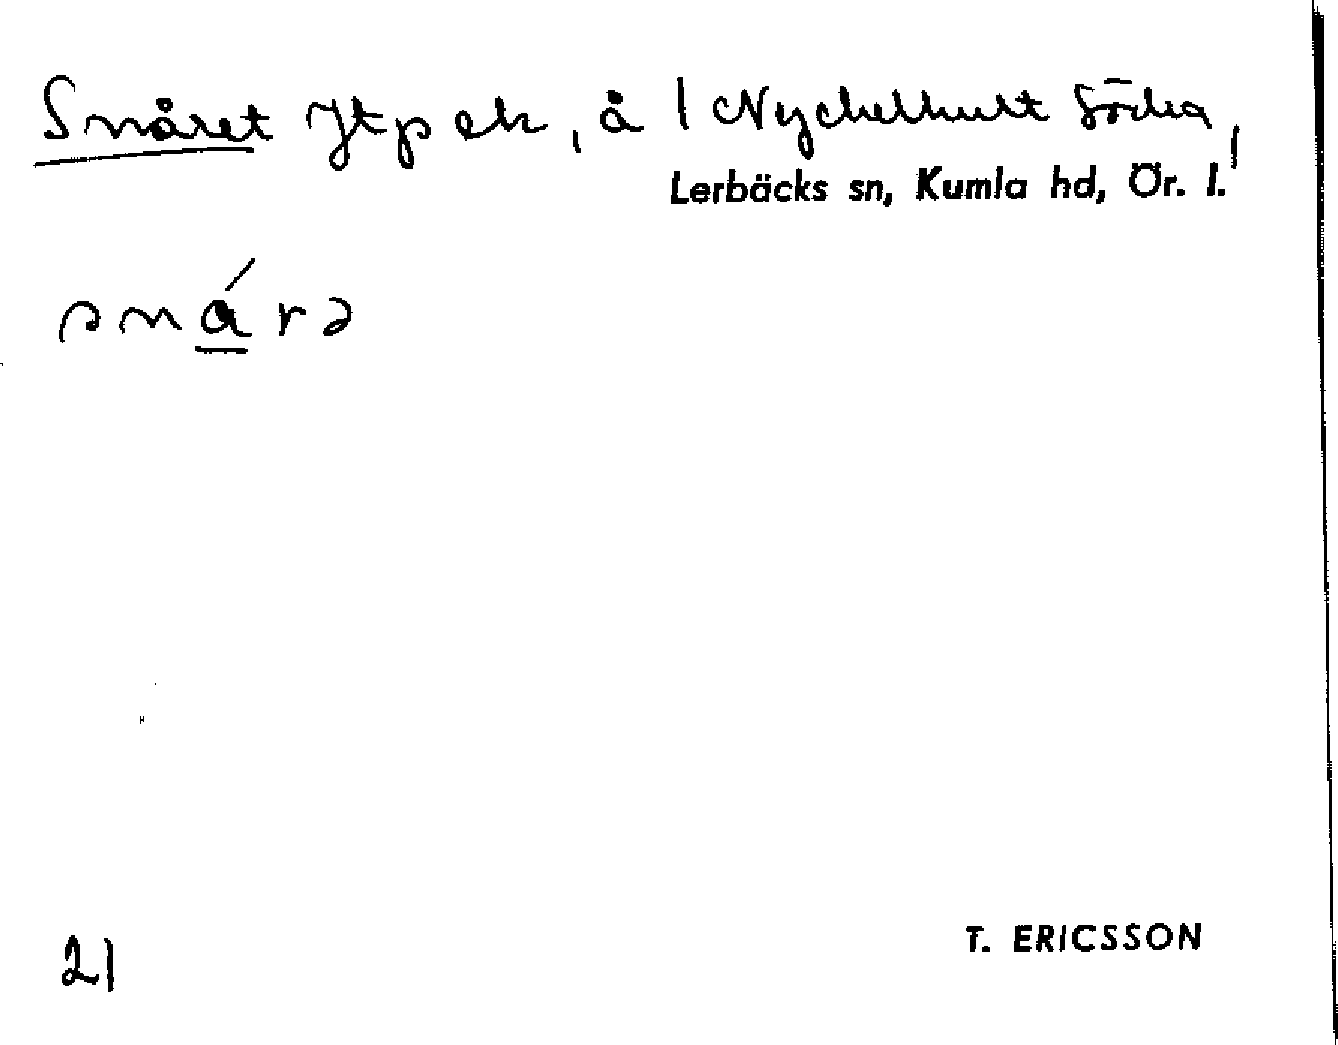 Snåret Jtp ek, å 1 Nyckelhult Södra,
Lerbäcks sn, Kumla hd, Ör. l.
snárə
21
T. ERICSSON